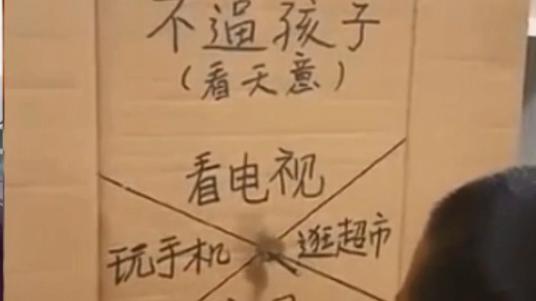 不逼孩子
(看天意)
看电视
玩手机
逛超市